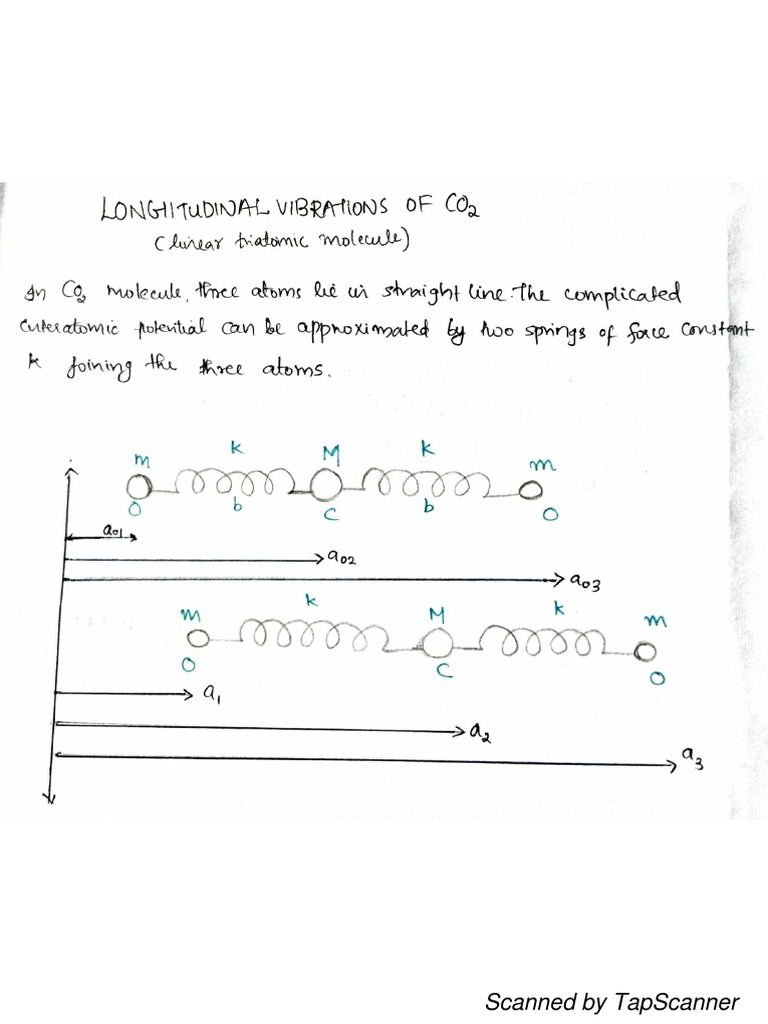 LONGITUDINAL VIBRATIONS OF CO2
(linear triatomic molecule)
In CO2 molecule, three atoms lie in straight line. The complicated
interatomic potential can be approximated by two springs of force constant
k joining the three atoms.
m k M k m
O b C b O
a01
a02
a03
m k M k m
O C O
a1
a2
a3
Scanned by TapScanner